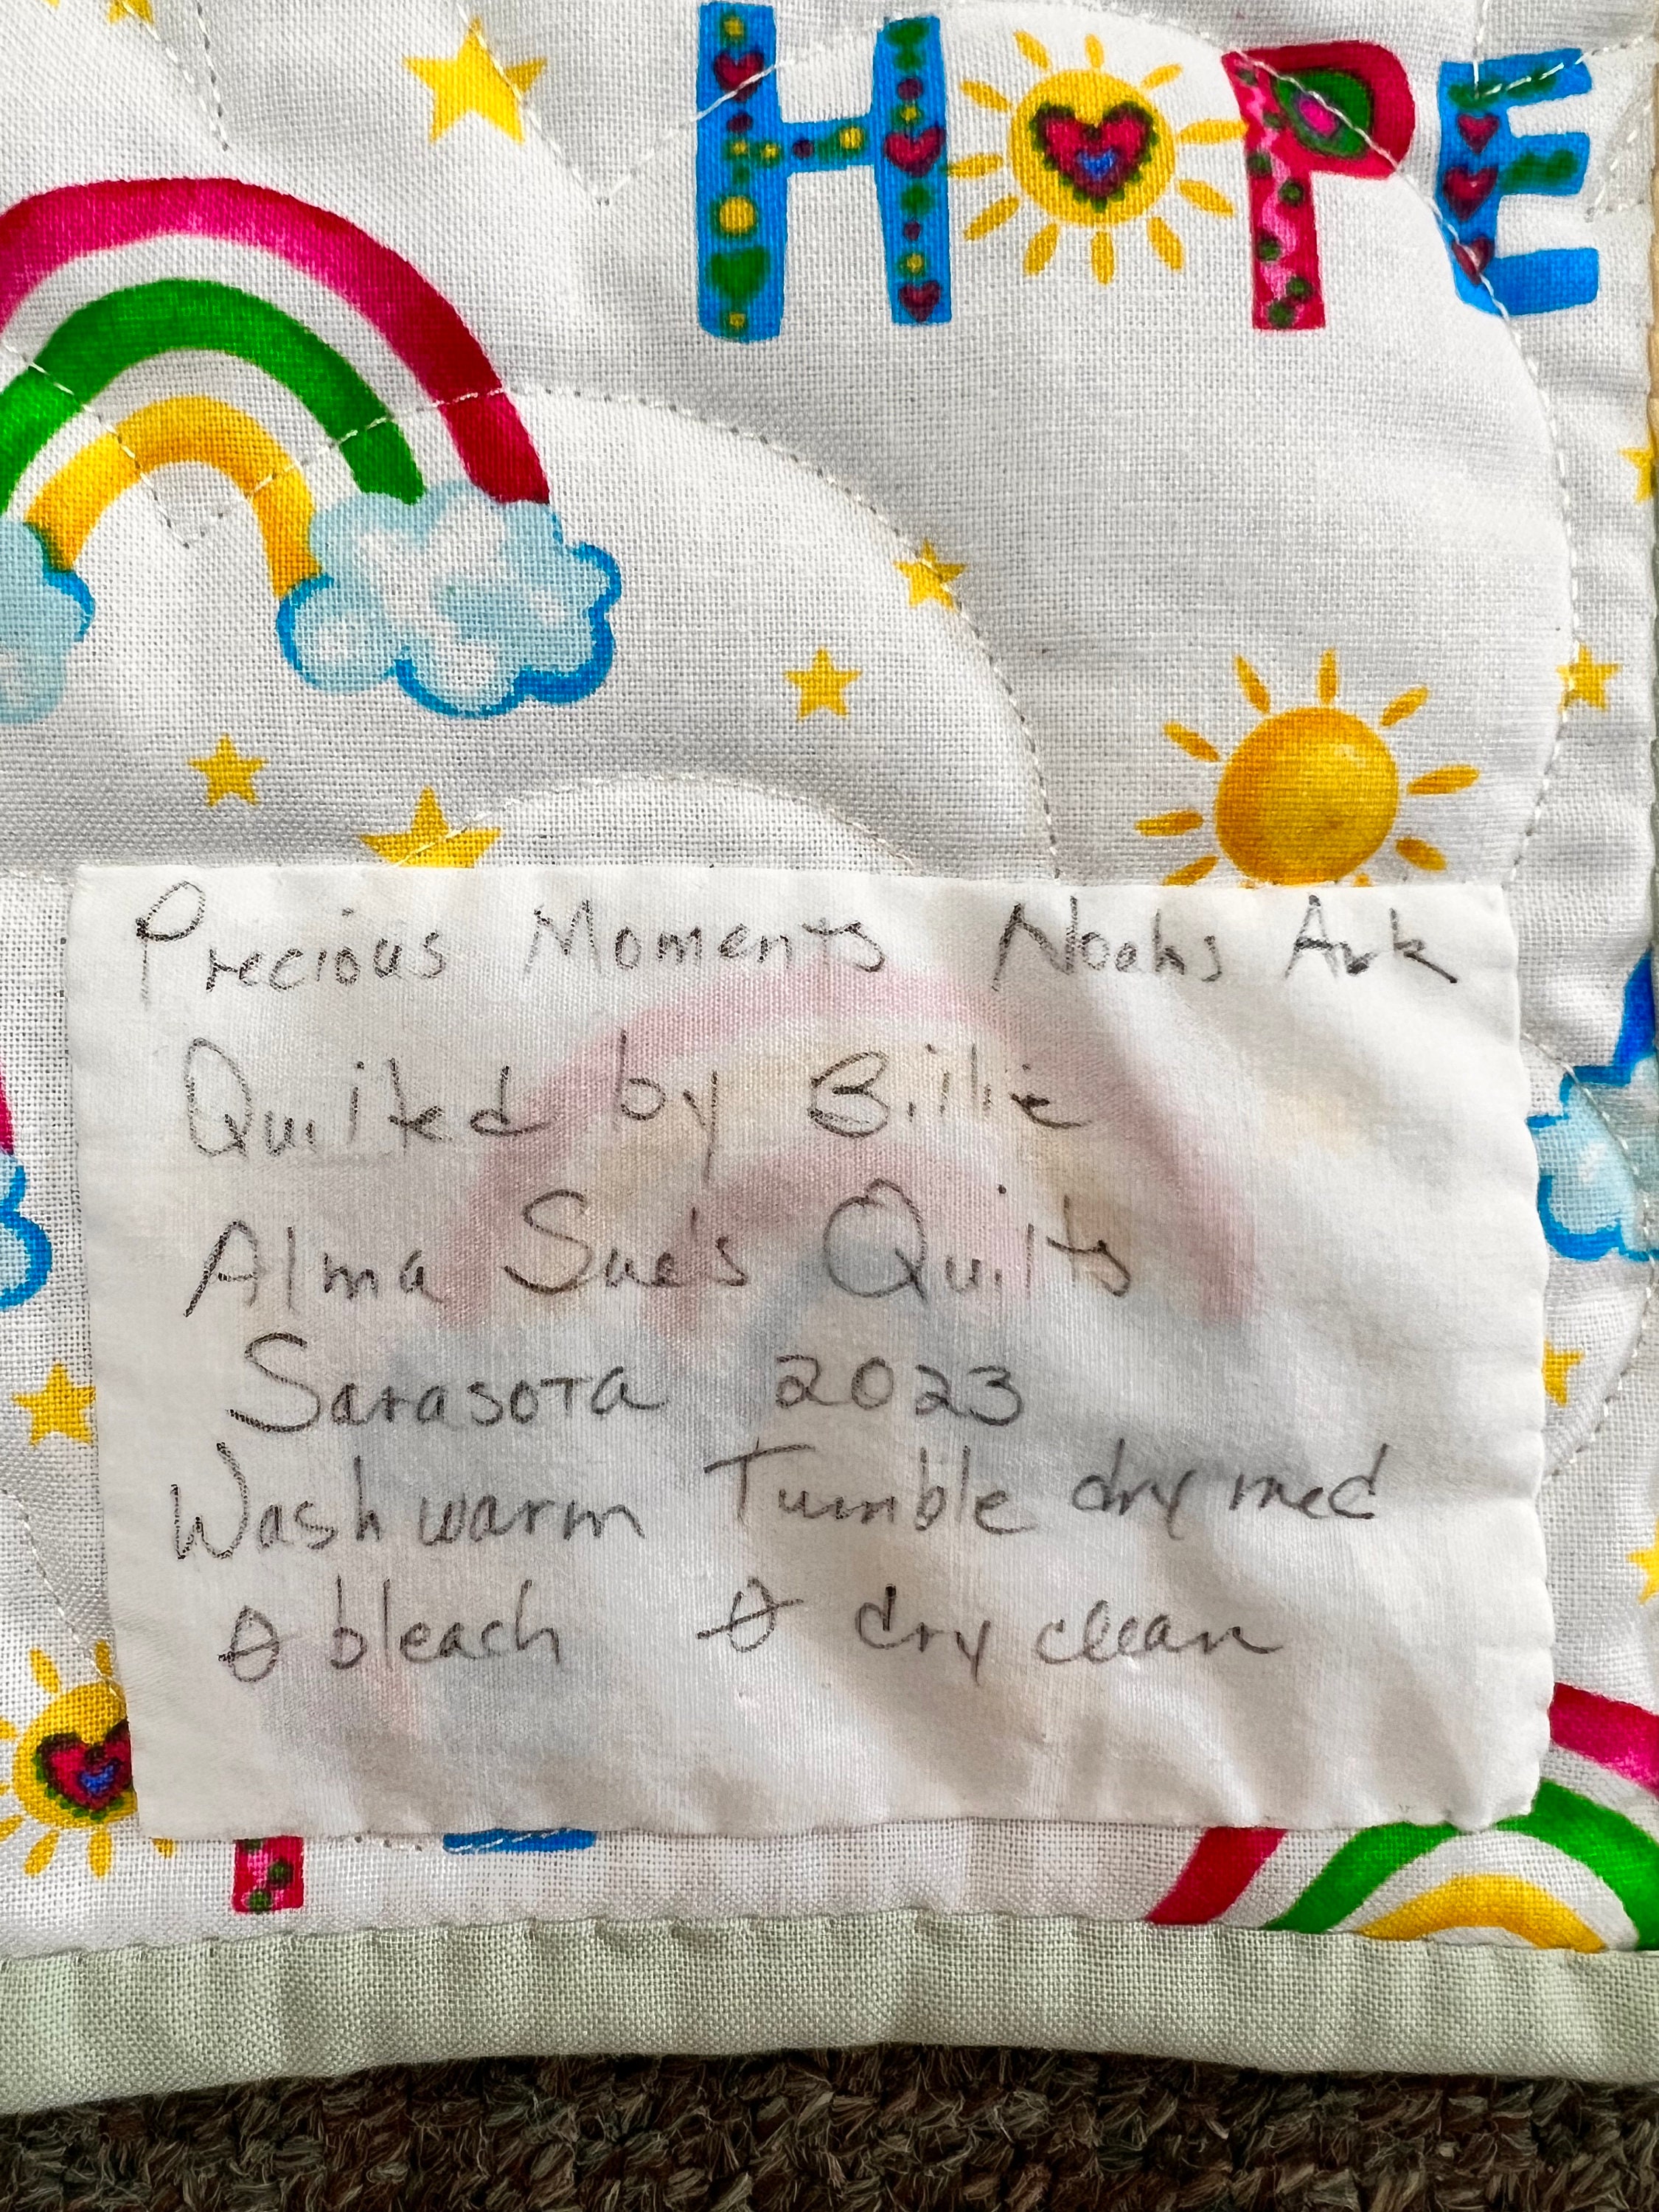 HOPE
Precious Moments Noahs Ark
Quilted by Billie
Alma Sue's Quilts
Sarasota 2023
Wash warm Tumble dry med
Ø bleach Ø dry clean